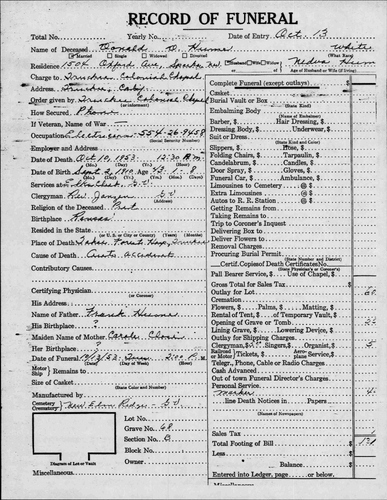 RECORD OF FUNERAL
Total No. Yearly No. Date of Entry Oct. 13
Name of Deceased Donald D. Hume White
Married Single Widowed Divorced (What Race)
Residence 1504 Oxford Ave,
Age of Husband or Wife (if living)
Charge to Truckee Colonial Chapel
Address Truckee, Calif
Order given by Truckee Colonial Chapel
How Secured Phone
If Veteran, Name of War
Occupation Electrician 554-26-9458
(Social Security Number)
Employer and Address
Date of Death Oct 10, 1953 12:30 A.M.
Date of Birth Sept 2, 1910 Age 43 - 1 - 8
Services at
Clergyman Rev.
Religion of the Deceased Prot
Birthplace Kansas
Resided in the State
(or U. S. or City or County) (Years) (Months)
Place of Death Tahoe Forest Hosp, Truckee
Cause of Death Auto accident
Contributory Causes
Certifying Physician
(or Coroner)
His Address
Name of Father Frank Hume
His Birthplace ?
Maiden Name of Mother Carole
Her Birthplace ?
Date of Funeral 10/13/53 2:00 P.M.
Motor Ship Remains to
Size of Casket
(State Color and Number)
Manufactured by
Cemetery Crematory New Elm Ridge G.V.
Lot No.
Grave No. 68
Section No. B
Block No.
Owner
Diagram of Lot or Vault
Miscellaneous
Complete Funeral (except outlays) $
Casket
Burial Vault or Box
(State Kind)
Embalming Body
(Name of Embalmer)
Barber, $ Hair Dressing, $
Dressing Body, $ Underwear, $
Suit or Dress
(State Kind and Color)
Slippers, $ Hose, $
Folding Chairs, $ Tarpaulin, $
Candelabrum, $ Candles, $
Door Spray, $ Gloves, $
Funeral Car, $ Ambulance, $
Limousines to Cemetery @ $
Extra Limousines @ $
Autos to R. R. Station @ $
Getting Remains from
Taking Remains to
Trip to Coroner's Inquest
Delivering Box to
Deliver Flowers to
Removal Charges
Procuring Burial Permit
(State Number and District)
Certif. Copies of Death Certificates No.
(State Physician's or Coroner's)
Pall Bearer Service, $ Use of Chapel, $
Gross Total for Sales Tax $
Outlay for Lot
Cremation
Flowers, $ Palms, $ Matting, $
Rental of Tent, $ of Temporary Vault, $
Opening of Grave or Tomb
Lining Grave, $ Lowering Device, $
Outlay for Shipping Charges
Clergyman, $ Singers, $ Organist, $
Railroad Motor Tickets, $ Aeroplane Service, $
Telegr., Phone, Cable or Radio Charges
Cash Advanced
Out of town Funeral Director's Charges
Personal Service
Marker
line Death Notices in Papers
(Names of Newspapers)
Sales Tax
Total Footing of Bill $
Less
Balance $
Entered into Ledger, page or below.
Miscellaneous: